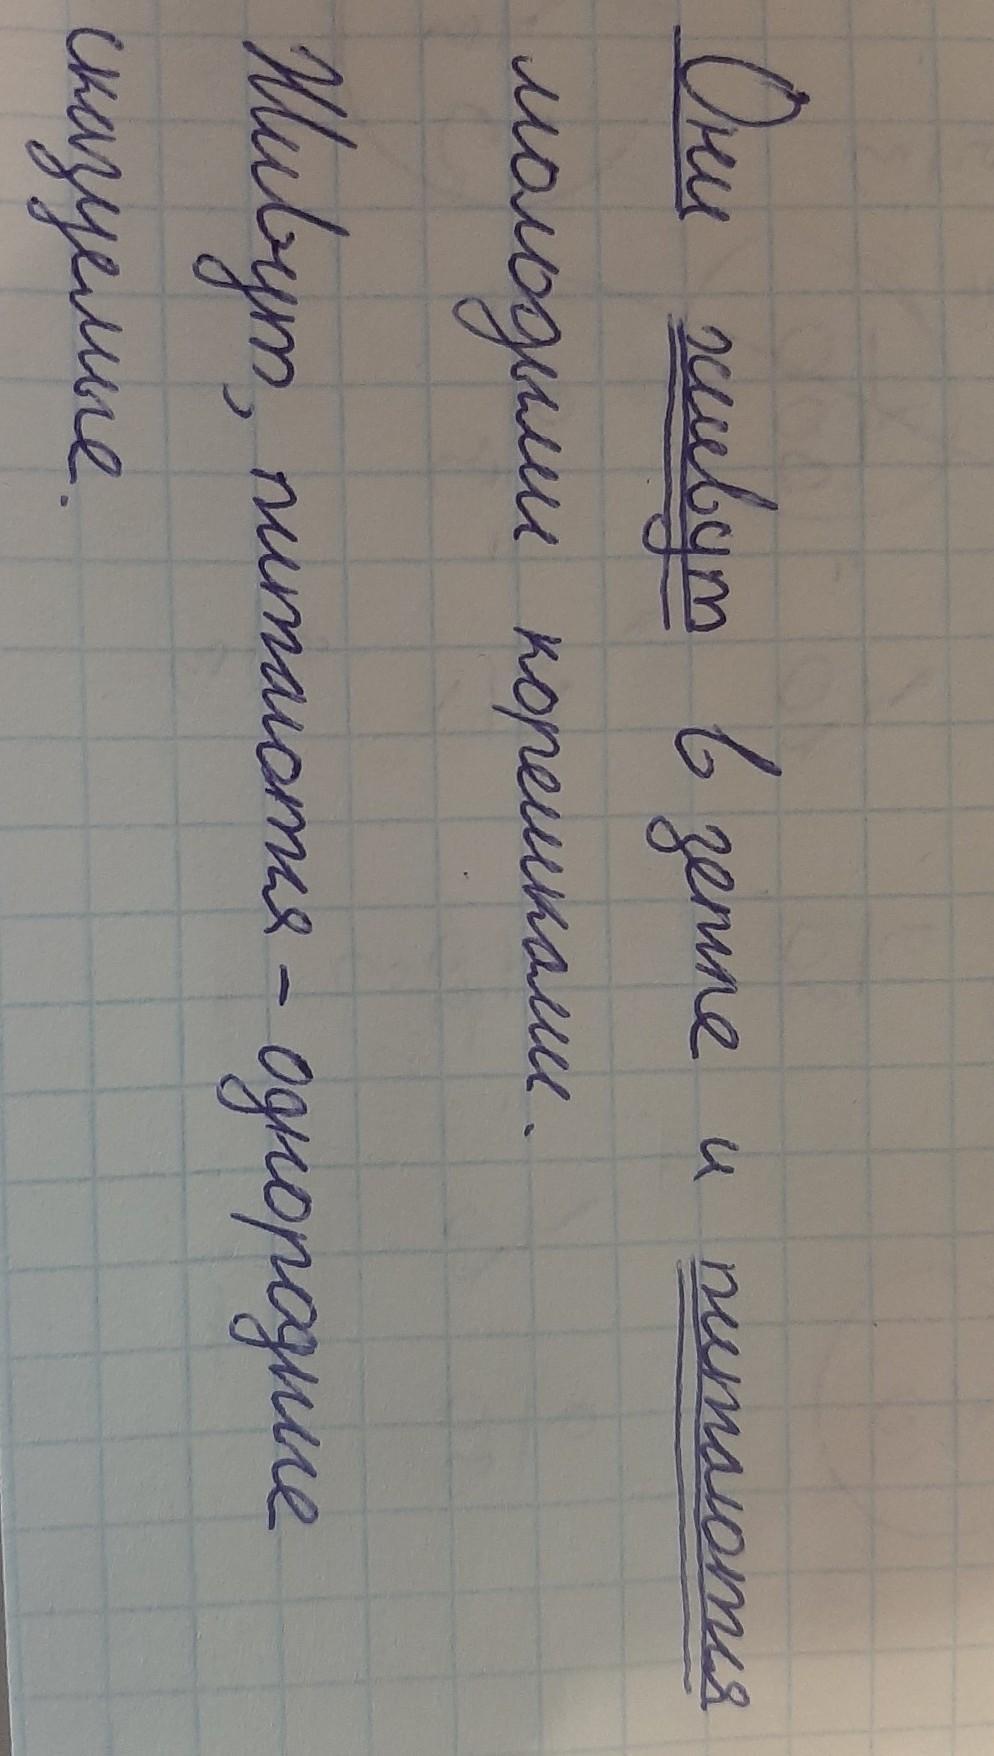 Они живут в земле и питаются
молодыми корешками.
Живут, питаются - однородные
сказуемые.